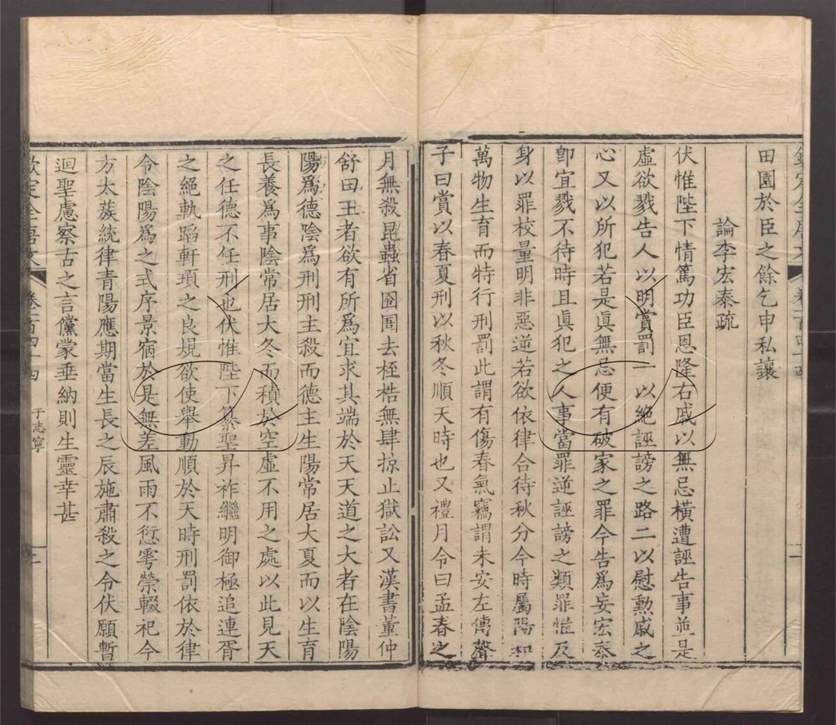 田園於臣之餘乞申私讓
論李宏泰疏
伏惟陛下情篤功臣恩隆右戚以無忌橫遭誣告事並是
虛欲戮告人以明賞罰一以絕誣謗之路二以慰勲戚之
心又以所犯若是眞無忌便有破家之罪今告爲妄宏泰
卽宜戮不待時且眞犯之人事當罪逆誣謗之類罪惟及
身以罪校量明非惡逆若欲依律合待秋分今時屬陽和
萬物生育而特行刑罰此謂有傷春氣竊謂未安左傳聲
子曰賞以春夏刑以秋冬順天時也又禮月令曰孟春之
月無殺昆蟲省囹圄去桎梏無肆掠止獄訟又漢書董仲
舒曰王者欲有所爲宜求其端於天天道之大者在陰陽
陽爲德陰爲刑刑主殺而德主生陽常居大夏而以生育
長養爲事陰常居大冬而積於空虛不用之處以此見天
之任德不任刑也伏惟陛下纂聖昇祚繼明御極追連胥
之絕軌蹈軒頊之良規欲使舉動順於天時刑罰依於律
令陰陽爲之式序景宿於是無差風雨不愆雩禜輟祀今
方太蔟統律青陽應期當生長之辰施肅殺之令伏願暫
迴聖慮察古之言儻蒙垂納則生靈幸甚
欽定全唐文 卷一百四十四 于志寧